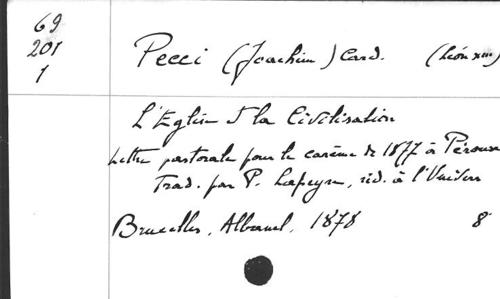 69
201
1
Pecci (Joachim) Card. (Léon XIII)
L'Eglise & la Civilisation
Lettre pastorale pour le carême de 1877 à Pérouse
Trad. par P. Lapeyre, réd. à l'Univers
Bruxelles, Albanel, 1878 8°